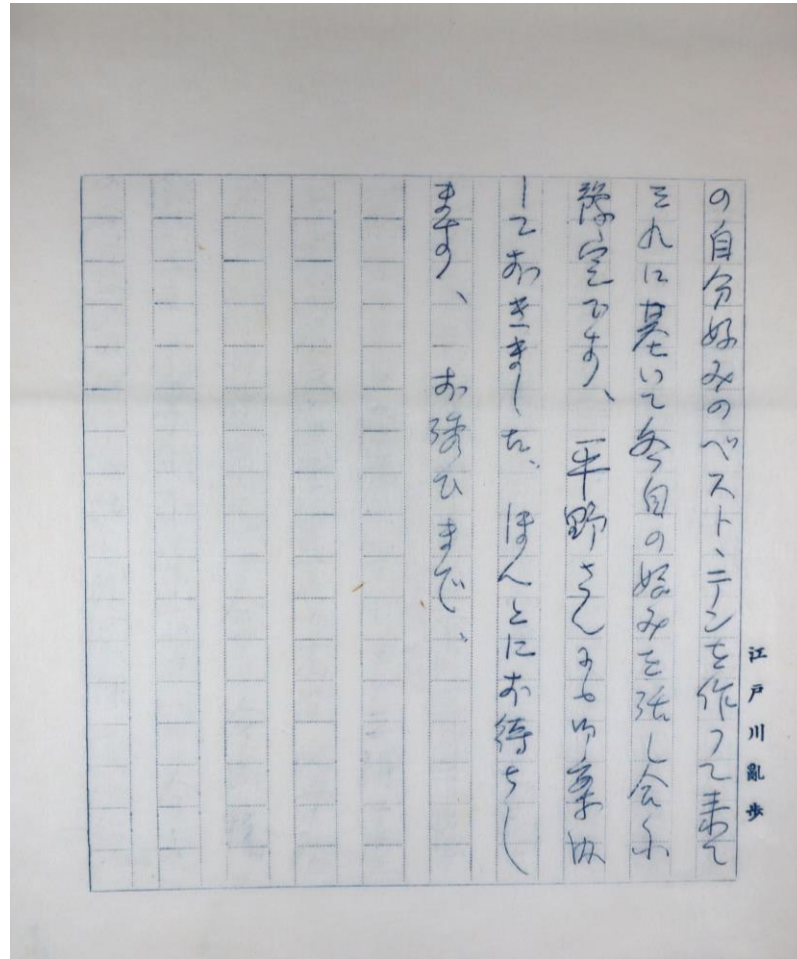 江戸川亂歩
の自分好みのベスト、テンを作つて来て
それに基いて各自の好みを話し会ふ
豫定です、平野さんにも御案内
しておきました、ほんとにお待ちし
ます、お誘ひまで、